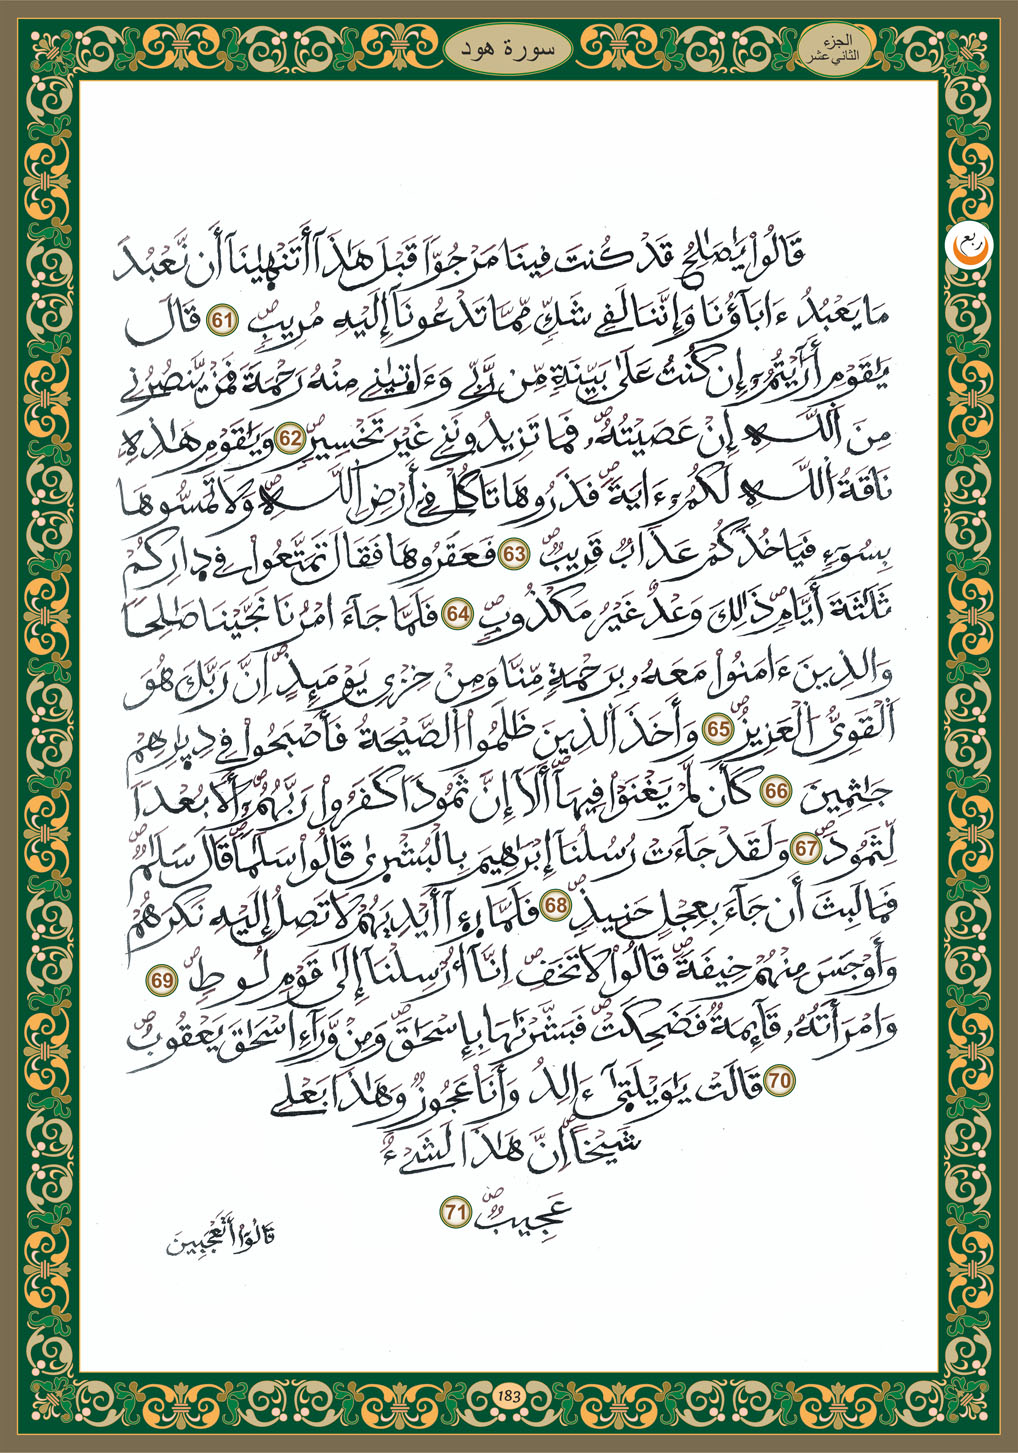 الجزء
الثاني عشر
سورة هود
ربع
قَالُواْ يَٰصَٰلِحُ قَدْ كُنتَ فِينَا مَرْجُوّٗا قَبْلَ هَٰذَآ أَتَنْهَىٰنَآ أَن نَّعْبُدَ
مَا يَعْبُدُ ءَابَآؤُنَا وَإِنَّنَا لَفِي شَكّٖ مِّمَّا تَدْعُونَآ إِلَيْهِ مُرِيبٖ 61 قَالَ
يَٰقَوْمِ أَرَٰٓيْتُمُۥٓ إِن كُنتُ عَلَىٰ بَيِّنَةٖ مِّن رَّبِّي وَءَاتَىٰنِي مِنْهُ رَحْمَةٗ فَمَنْ يَّنصُرُنِي
مِنَ اَ۬للَّهِ إِنْ عَصَيْتُهُۥ فَمَا تَزِيدُونَنِي غَيْرَ تَخْسِيرٖ 62 وَيَٰقَوْمِ هَٰذِهِۦ
نَاقَةُ اُ۬للَّهِ لَكُمُۥٓ ءَايَةٗ فَذَرُوهَا تَاكُلْ فِي أَرْضِ اِ۬للَّهِ وَلَا تَمَسُّوهَا
بِسُوٓءٖ فَيَاخُذَكُمْ عَذَابٞ قَرِيبٞ 63 فَعَقَرُوهَا فَقَالَ تَمَتَّعُواْ فِي دِارِكُمْ
ثَلَٰثَةَ أَيَّامٖ ذَٰلِكَ وَعْدٌ غَيْرُ مَكْذُوبٖ 64 فَلَمَّا جَآءَ امْرُنَا نَجَّيْنَا صَٰلِحٗا
وَالذِينَ ءَامَنُواْ مَعَهُۥ بِرَحْمَةٖ مِّنَّا وَمِنْ خِزْيِ يَوْمَئِذٍ اِنَّ رَبَّكَ هُوَ
اَ۬لْقَوِيُّ اُ۬لْعَزِيزُ 65 وَأَخَذَ اَ۬لذِينَ ظَلَمُواْ اُ۬لصَّيْحَةُ فَأَصْبَحُواْ فِي دِيٰ۪رِهِمْ
جَٰثِمِينَ 66 كَأَن لَّمْ يَغْنَوْاْ فِيهَآ أَلَآ إِنَّ ثَمُودٗا كَفَرُواْ رَبَّهُمُۥٓ أَلَا بُعْدٗا
لِّثَمُودَ 67 وَلَقَدْ جَآءَتْ رُسُلُنَآ إِبْرَٰهِيمَ بِالْبُشْر۪يٰ قَالُواْ سَلَٰمٗا قَالَ سَلَٰمٞ
فَمَا لَبِثَ أَن جَآءَ بِعِجْلٍ حَنِيذٖ 68 فَلَمَّا رِءَآ أَيْدِيَهُمْ لَا تَصِلُ إِلَيْهِ نَكِرَهُمْ
وَأَوْجَسَ مِنْهُمْ خِيفَةٗ قَالُواْ لَا تَخَفِ اِنَّآ أُرْسِلْنَآ إِلَىٰ قَوْمِ لُوطٖ 69
وَامْرَأَتُهُۥ قَآئِمَةٞ فَضَحِكَتْ فَبَشَّرْنَٰهَا بِإِسْحَٰقَ وَمِنْ وَّرَآءِ اسْحَٰقَ يَعْقُوبُ
70 قَالَتْ يَٰوَيْلَتَىٰٓ ءَالِدُ وَأَنَا عَجُوزٞ وَهَٰذَا بَعْلِي
شَيْخًا اِنَّ هَٰذَا لَشَيْءٌ
عَجِيبٞ 71
قَالُوٓاْ أَتَعْجَبِينَ
183